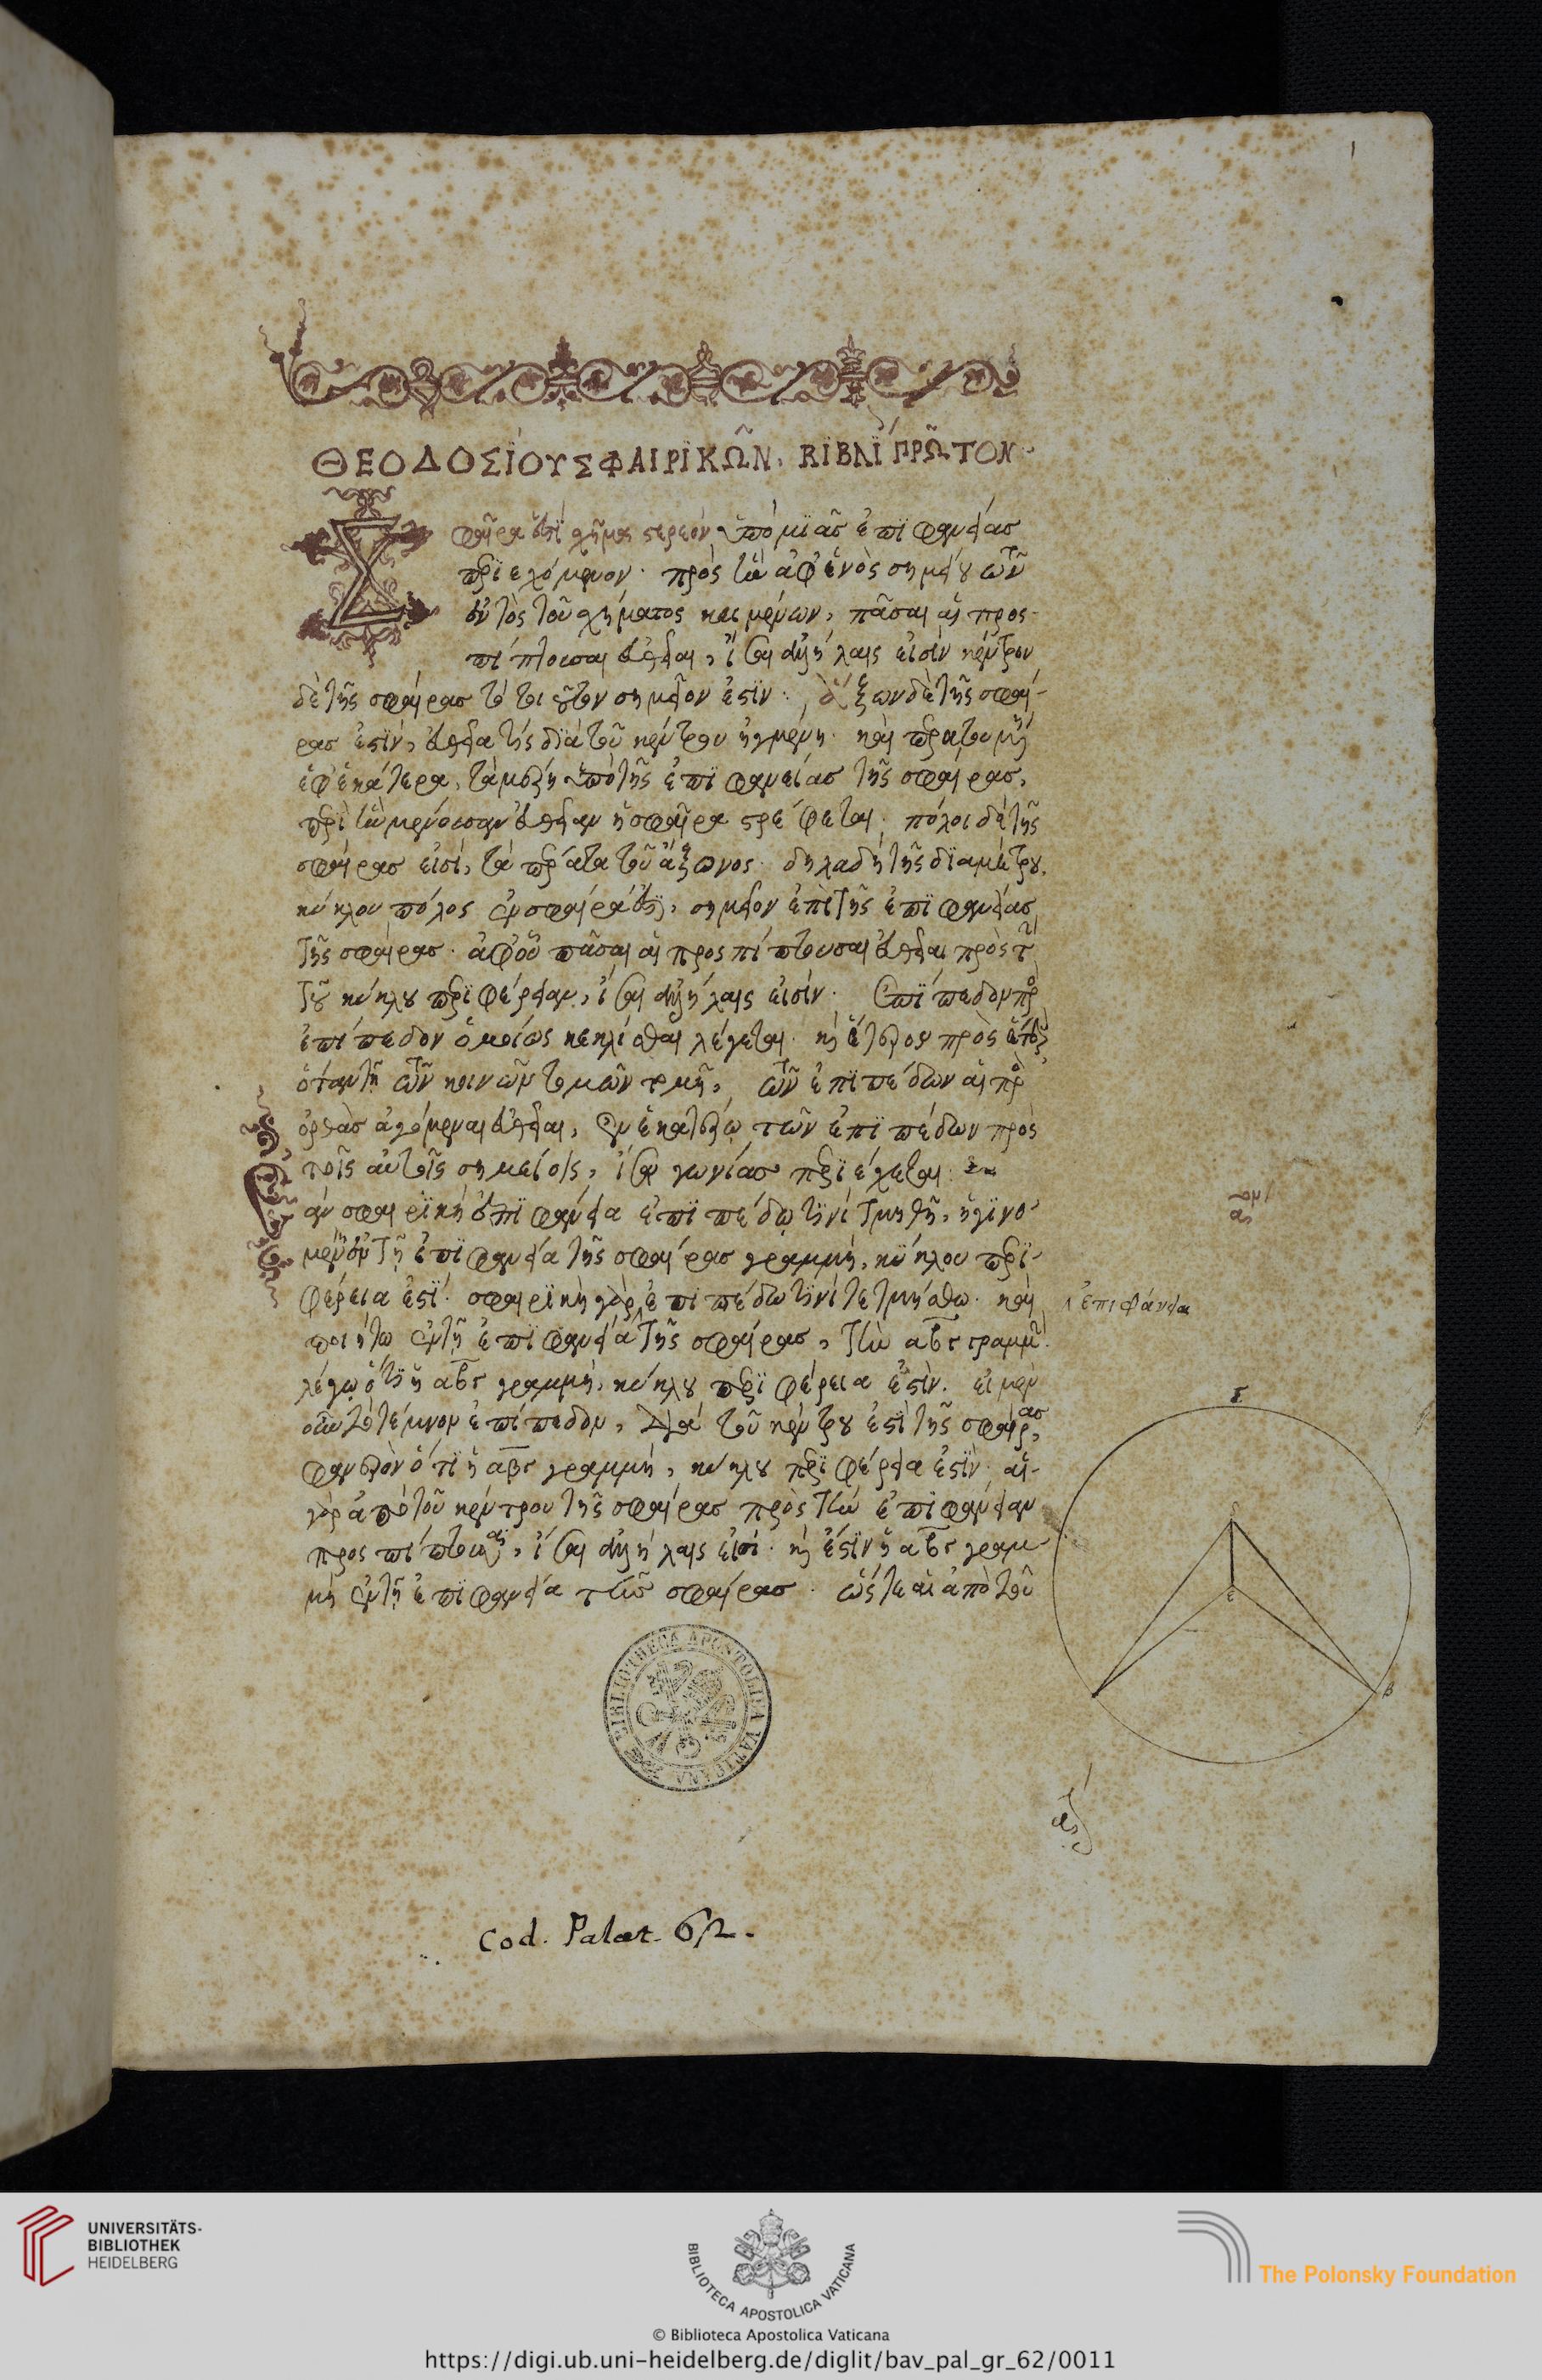 1
ΘΕΟΔΟΣΙΟΥ ΣΦΑΙΡΙΚΩΝ. ΒΙΒΛΙ ΠΡΩΤΟΝ
Σφαῖρα ἐστὶ σχῆμα στερεόν, ὑπὸ μιᾶς ἐπιφανείας
περιεχόμενον· πρὸς ἣν ἀφ' ἑνὸς σημείου τῶν
ἐντὸς τοῦ σχήματος κειμένων, πᾶσαι αἱ προσ-
πίπτουσαι εὐθεῖαι, ἴσαι ἀλλήλαις εἰσίν κέντρον
δὲ τῆς σφαίρας τὸ τοιοῦτον σημεῖον ἐστίν· ἄξων δὲ τῆς σφαί-
ρας ἐστίν, εὐθεῖα τίς διὰ τοῦ κέντρου ἠγμένη· καὶ περατουμένη
ἐφ' ἑκάτερα, τὰ μέρη ὑπὸ τῆς ἐπιφανείας τῆς σφαίρας,
περὶ ἣν μένουσαν εὐθεῖαν ἡ σφαῖρα στρέφεται· πόλοι δὲ τῆς
σφαίρας εἰσί, τὰ πέρατα τοῦ ἄξωνος· δηλαδὴ τῆς διαμέτρου.
κύκλου πόλος ἐν σφαίρᾳ ἐστί, σημεῖον ἐπὶ τῆς ἐπιφανείας
τῆς σφαίρας· ἀφ' οὗ πᾶσαι αἱ προσπίπτουσαι εὐθεῖαι πρὸς τὴν
τοῦ κύκλου περιφέρειαν, ἴσαι ἀλλήλαις εἰσίν· Ἐπίπεδον πρὸς
ἐπίπεδον ὁμοίως κεκλίσθαι λέγεται· καὶ ἕτερον πρὸς ἕτερον
ὅταν τῇ τῶν κοινῶν τομῶν τομῇ, τῶν ἐπιπέδων αἱ πρὸς
ὀρθὰς ἀγόμεναι εὐθεῖαι, ἐν ἑκατέρῳ τῶν ἐπιπέδων πρὸς
τοῖς αὐτοῖς σημείοις, ἴσας γωνίας περιέχεται
Ἐὰν σφαιρικὴ ἐπιφάνεια ἐπιπέδῳ τινὶ τμηθῇ, ἡ γινο-
μένη ἐν τῇ ἐπιφανείᾳ τῆς σφαίρας γραμμή, κύκλου περι-
φέρεια ἐστί· σφαιρικὴ γὰρ ἐπιπέδῳ τινὶ τετμήσθω· καὶ
ἐπιφάνεια
ποιήτω ἐν τῇ ἐπιφανείᾳ τῆς σφαίρας, τὴν αβγ γραμμήν·
λέγω ὅτι ἡ αβγ γραμμή, κύκλου περιφέρεια ἐστίν. εἰ μὲν
οὖν τὸ τέμνον ἐπίπεδον, διὰ τοῦ κέντρου ἐστὶ τῆς σφαίρας,
φανερὸν ὅτι ἡ αβγ γραμμή, κύκλου περιφέρεια ἐστίν· αἱ
γὰρ ἀπὸ τοῦ κέντρου τῆς σφαίρας πρὸς τὴν ἐπιφάνειαν
προσπίπτουσαι, ἴσαι ἀλλήλαις εἰσί· καὶ ἐστὶν ἡ αβγ γραμ
μὴ ἐν τῇ ἐπιφανείᾳ τῆς σφαίρας· ὥστε αἱ ἀπὸ τοῦ
Γ
ε
β
BIBLIOTHECA APOSTOLICA VATICANA
Cod. Palat. 62.
UNIVERSITÄTS-
BIBLIOTHEK
HEIDELBERG
BIBLIOTECA APOSTOLICA VATICANA
The Polonsky Foundation
© Biblioteca Apostolica Vaticana
https://digi.ub.uni-heidelberg.de/diglit/bav_pal_gr_62/0011